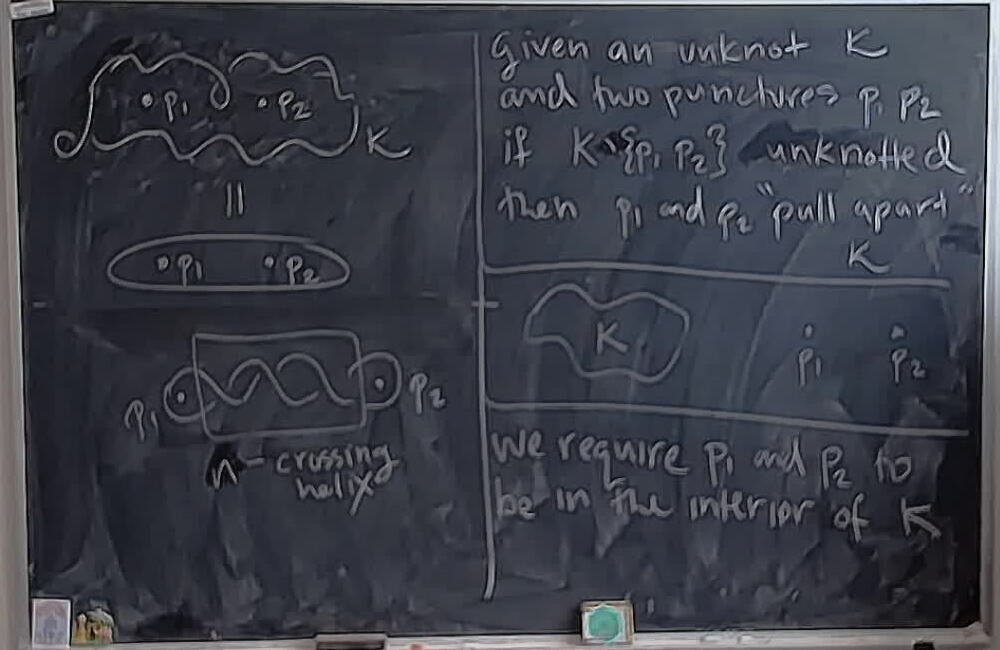 p1
p2
K
||
p1
p2
P1
P2
n-crossing
helix
Given an unknot K
and two punctures p1 p2
if K\{p1 p2} unknotted
then p1 and p2 "pull apart"
K
K
p1
p2
We require p1 and p2 to
be in the interior of K